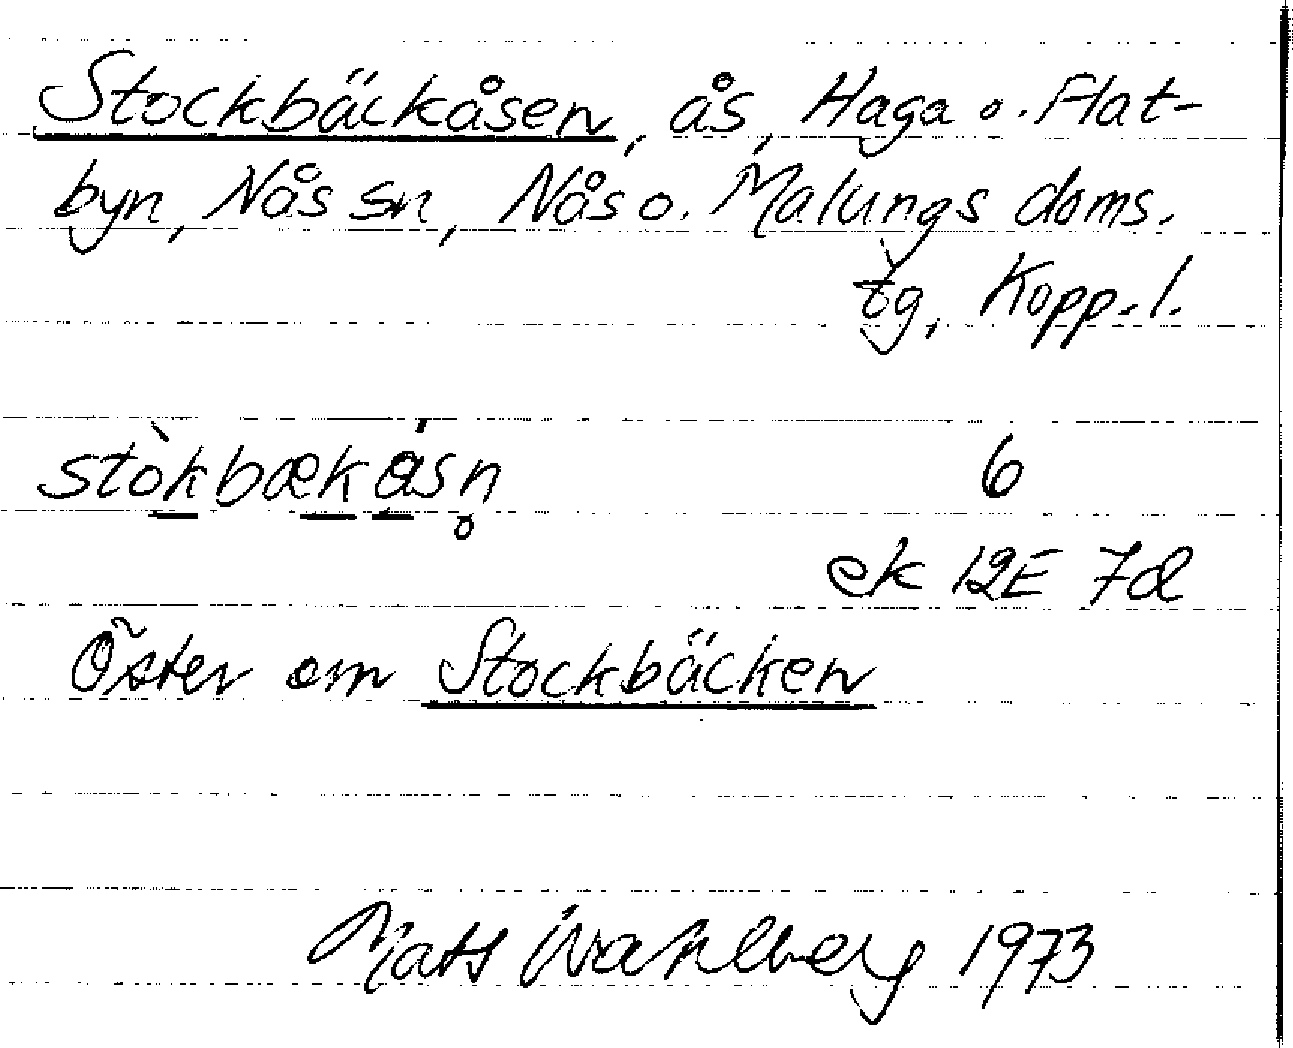 Stockbäckåsen, ås, Haga o. Flat-
byn, Nås sn, Nås o. Malungs doms.
tg, Kopp. l.
stòkbækåsn̥ 6
ek 12E 7d
Öster om Stockbäcken
Mats Wahlberg 1973